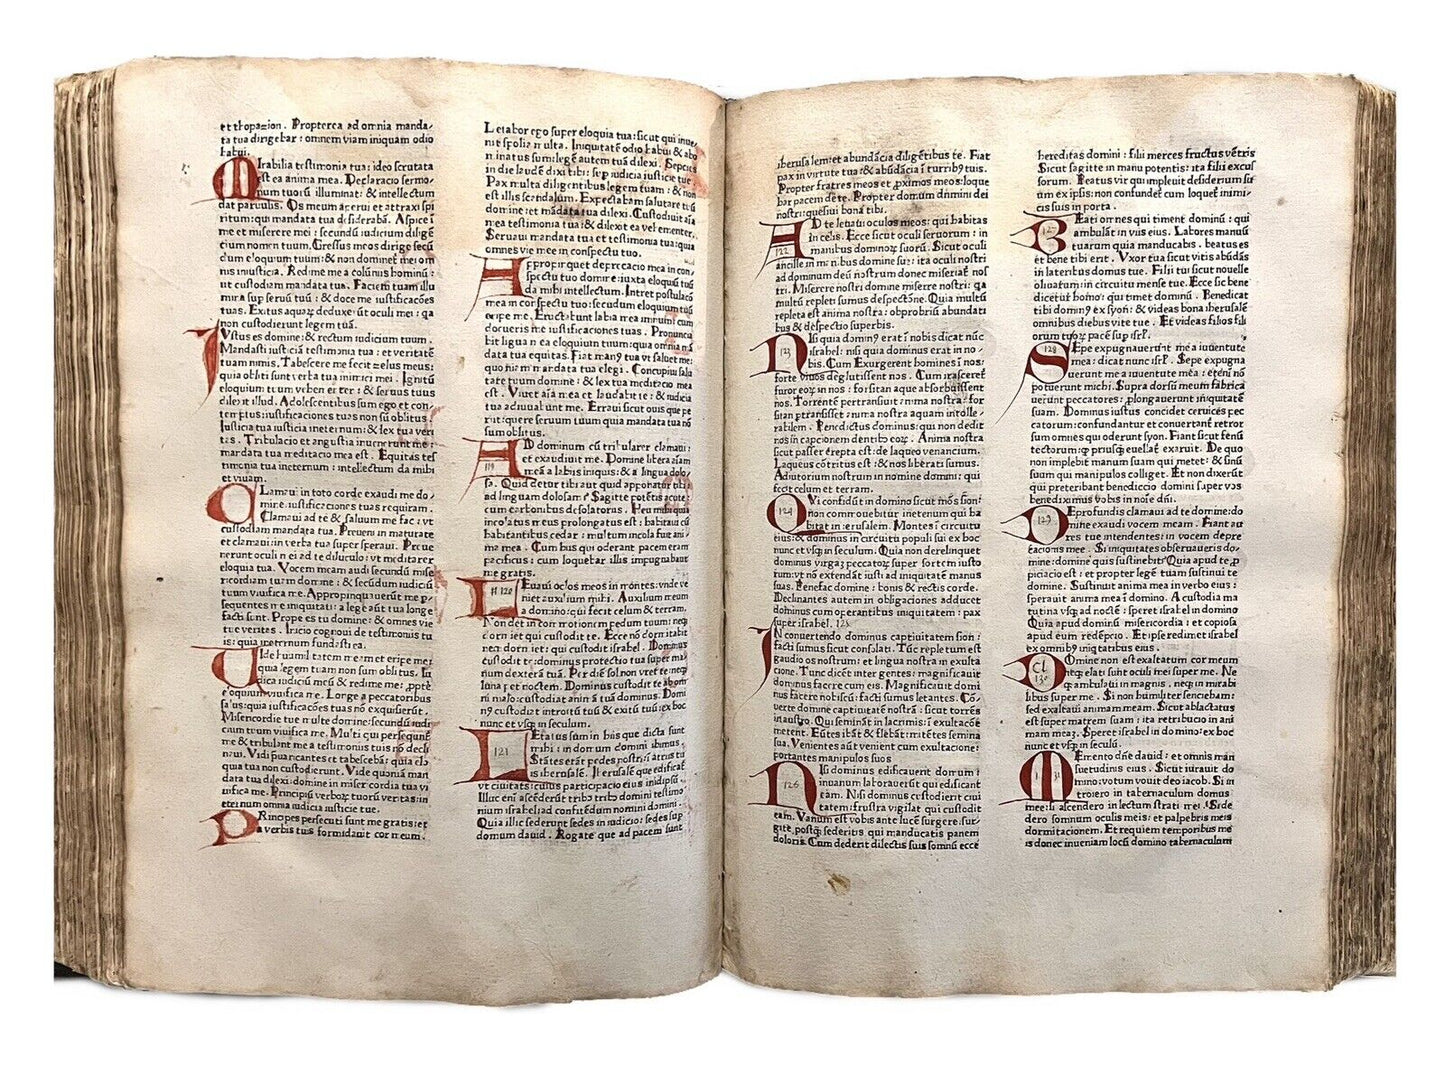 et thopazion . Propterea ad omnia manda⸗
ta tua dirigebar : omnem viam iniquam odio
habui .
MIrabilia testimonia tua : ideo scrutata
est ea anima mea . Declaracio sermo⸗
num tuorū illuminat : & intellectum
dat paruulis . Os meum aperui et attraxi spi
ritum : qui mandata tua desiderabā . Aspice ī
me et miserere mei : secundū iudicium diligē
cium nomen tuum . Gressus meos dirige secū
dum eloquium tuū : & non dominet mei om
nis iniusticia . Redime me a calūniis hominū :
ut custodiam mandata tua . Faciem tuam illu
mina sup seruū tuū : & doce me iustificacōes
tuas . Exitus aquaꝝ deduxerūt oculi mei : qa
non custodierunt legem tuā .
IVstus es domine : & rectum iudicium tuum .
Mandasti iusticiā testimonia tua : et veritatē
tuam nimis . Tabescere me fecit zelus meus :
quia obliti sunt verba tua inimici mei . Ignitū
eloquium tuum vehementer : & seruus tuus
dilexit illud . Adolescentulus sum ego et con⸗
temptus : iustificationes tuas non sū oblitus .
Iusticia tua iusticia ineternum : & lex tua veri
tas . Tribulacio et angustia inuenerunt me :
mandata tua meditacio mea est . Equitas tes
timonia tua ineternum : intellectum da mihi
et viuam .
CLamaui in toto corde exaudi me do⸗
mine : iustificaciones tuas requiram .
Clamaui ad te & saluum me fac : vt
custodiam mandata tua . Preueni in maturate
et clamaui : in verba tua super speraui . Preue
nerunt oculi mei ad te diluculo : vt meditarer
eloquia tua . Vocem meam audi secundū mise
ricordiam tuam domine : & secūdum iudiciū
tuum viuifica me . Appropinquauerūt me p⸗
sequentes me iniquitati : a lege aūt tua longe
facti sunt . Prope es tu domine : & omnes vie
tue veritas . Inicio cognoui de testimoniis tu
is : quia ineternum fundasti ea .
VIde humilitatem meam et eripe me :
quia legem tuam non sum oblitus . Iu
dica iudiciū meū & redime me : ꝓpte
eloquium tuū viuifica me . Longe a peccatoribus
salus : quia iustificacōes tuas nō exquisierūt .
Misericordie tue multe domine : secundū iudi
cium tuum viuifica me . Multi qui persequnt̄
me & tribulant me a testimoniis tuis nō decli
naui . Vidi preuaricantes et tabescebā : quia elo
quia tua non custodierunt . Vide quoniā man
data tua dilexi : domine in misericordia tua vi
uifica me . Principiū verboꝝ tuorū veritas : in
eternum omnia iudicia iusticie tue .
PRincipes persecuti sunt me gratis : et
a verbis tuis formidauit cor meum .
Letabor ego super eloquia tua : sicut qui inue⸗
nit spolia multa . Iniquitatē odio habui & abo
minatus sum : legē autem tuā dilexi . Sepcies
in die laudē dixi tibi : sup iudicia iusticie tue .
Pax multa diligentibus legem tuam : & non
est illis scandalum . Expectabam salutare tuū
domine : et mādata tua dilexi . Custodiuit aīa
mea testimonia tua : & dilexit ea vehementer .
Seruaui mandata tua et testimonia tua : quia
omnes vie mee in conspectu tuo .
APpropinquet deprecacio mea in con⸗
spectu tuo domine : iuxta eloquiū tuū
da mihi intellectum . Intret postulacō
mea in conspectu tuo : secundum eloquium tuū
eripe me . Eructabunt labia mea imnum : cum
docueris me iustificaciones tuas . Pronuncia
bit lingua mea eloquium tuum : quia omnia mā
data tua equitas . Fiat manꝰ tua vt saluet me :
quoniam mandata tua elegi . Concupiui salu
tare tuum domine : & lex tua meditacio mea
est . Viuet aīa mea et laudabit te : & iudicia
tua adiuuabunt me . Erraui sicut ouis que pe
riit : quere seruum tuum quia mandata tua nō
sum oblitus .
AD dominum cū tribularer clamaui :
119
et exaudiuit me . Domine libera aīam
meā a labiis iniquis : & a lingua dolo⸗
sa . Quid detur tibi aut quid apponatur tibi
ad linguam dolosam ? Sagitte potētis acute :
cum carbonibus desolatoriis . Heu mihi qui
incolatus meus prolongatus est : habitaui cū
habitantibus cedar : multum incola fuit ani⸗
ma mea . Cum hiis qui oderant pacem eram
pacificus : cum loquebar illis impugnabant
me gratis .
LEuaui oclos meos in montes : vnde ve
120
niet auxilium mihi . Auxilium meum
a domino : qui fecit celum & terram .
Non det in commotionem pedem tuum : neq
dormiet qui custodit te . Ecce nō dormitabit
neq dormiet : qui custodit israhel . Dominus
custodit te : dominus protectio tua super ma
num dexterā tua . Per diē sol non vret te : neq
luna per noctem . Dominus custodit te ab om
ni malo : custodiat animā tuā dominus . Domi
nꝰ custodiat introitū tuū & exitū tuū : ex hoc
nunc et vsq in seculum .
LEtatus sum in hiis que dicta sunt
121
mihi : in domum domini ibimus .
Stātes erāt pedes nostri : ī atriis tu
is iherusalē . Iherusalē que edificat̄
vt ciuitas : cuius participacio eius in idipsū .
Illuc enī ascēderūt tribꝰ tribꝰ domini testimo
nium israhel : ad confitēdum nomini domini .
Quia illic sederunt sedes in iudicio : sedes sup
domum dauid . Rogate que ad pacem sunt
iherusalem : et abundācia diligētibus te . Fiat
pax in virtute tua : & abūdācia ī turribꝰ tuis .
Propter fratres meos et ꝓximos meos : loque
bar pacem de te . Propter domum domini dei
nostri : quesiui bona tibi .
AD te leuaui oculos meos : qui habitas
122
in celis . Ecce sicut oculi seruorum : in
manibus dominoꝝ suorū . Sicut oculi
ancille in manibus domine sue : ita oculi nostri
ad dominum deū nostrum donec misereat̄ nos
tri . Miserere nostri domine miserere nostri : qa
multū repleti sumus despectōne . Quia multū
repleta est anima nostra : obprobriū abundāti
bus & despectio superbis .
NIsi quia dominꝰ erat ī nobis dicat nūc
123
israhel : nisi quia dominus erat in no⸗
bis . Cum Exurgerent homines ī nos :
forte viuos deglutissent nos . Cum irasceret̄
furor eoꝝ in nos : forsitan aqua absorbuissent
nos . Torrentē pertransiuit anima nostra : for
sitan ptransisset anima nostra aquam intolle⸗
rabilem . Benedictus dominus : qui non dedit
nos in capcionem dentibꝰ eoꝝ . Anima nostra
sicut passer erepta est : de laqueo venancium .
Laqueus cōtritus est : & nos liberati sumus .
Adiutorium nostrum in nomine domini : qui
fecit celum et terram .
QVi confidūt in domino sicut mōs sion :
124
non commouebitur ineternum qui ha
bitat in iherusalem . Montes ī circuitu
eius : & dominus in circuitu populi sui ex hoc
nunc et vsq in seculum . Quia non derelinquet
dominus virgaꝫ peccatoꝝ super sortem iusto
rum : vt nō extendāt iusti ad iniquitatē manus
suas . Benefac domine : bonis & rectis corde .
Declinantes autem in obligaciones adducet
dominus cum operantibus iniquitatem : pax
super israhel . 125
IN conuertendo dominus captiuitatem sion :
facti sumus sicut consolati . Tūc repletum est
gaudio os nostrum : et lingua nostra in exulta
cione . Tunc dicent inter gentes : magnificauit
dominus facere cum eis . Magnificauit domi
nus facere nobiscū : facti sumus letantes . Cō⸗
uerte domine captiuitatē nostrā : sicut torrēs
in austro . Qui semināt in lacrimis : ī exultacōe
metent . Eūtes ibāt & flebāt : mitētes semina
sua . Venientes aūt venient cum exultacione :
portantes manipulos suos
NIsi dominus edificauerit domum :
126
inuanum laborauerūt qui edificant
eam . Nisi dominus custodierit ciui
tatem : frustra vigilat qui custodit
eam . Vanum est vobis ante lucē surgere : sur⸗
gite postqꝫ sederitis qui manducatis panem
doloris . Cum dederit dilectis suis somnū ecce
hereditas domini : filii merces fructus vētris
Sicut sagitte in manu potentis : ita filii excus
sorum . Beatus vir qui impleuit desiderium su
um ex ipsis : non confundet̄ cum loquet̄ inimi⸗
cis suis in porta .
BEati omnes qui timent dominū : qui
127
ambulāt in viis eius . Labores manuū
tuarum quia manducabis . beatus es
et bene tibi erit . Vxor tua sicut vitis abūdās
in lateribus domus tue . Filii tui sicut nouelle
oliuatum : in circuitu mense tue . Ecce sic bene
dicet̄ homo : qui timet dominū . Benedicat
tibi dominꝰ ex syon : & videas bona iherusalē
omnibus diebus vite tue . Et videas filios fili
orum tuoꝝ pacē sup isrl' .
SEpe expugnauerūt me a iuuentute
128
mea : dicat nunc isrl' . Sepe expugna
uerunt me a iuuentute mea : etenī nō
potuerunt michi . Supra dorsū meum fabrica
uerunt peccatores : ꝓlongauerunt iniquitatē
suam . Dominus iustus concidet ceruices pec
catorum : confundantur et conuertant̄ retror
sum omnes qui oderunt syon . Fiant sicut fenū
tectorum : qd̄ priusqꝫ euellat̄ exaruit . De quo
non impleuit manum suam qui metet : & sinū
suum qui manipulos colliget . Et non dixerūt
qui preteribant benediccio domini super vos
benediximus vobis in noīe dn̄i .
DE profundis clamaui ad te domine : do
129
mine exaudi vocem meam . Fiant au
res tue intendentes : in vocem depre
cacionis mee . Si iniquitates obseruaueris do⸗
mine : domine quis sustinebit ? Quia apud te ꝓpi
piciacio est : et propter legē tuam sustinui te
domine . Sustinuit anima mea ī verbo eius :
sperauit anima mea ī domino . A custodia ma
tutina vsqꝫ ad noctē : speret israhel in domino
Quia apud dominū misericordia : et copiosa
apud eum redēpcio . Et ipse redimet israhel
ex omnibꝰ iniquitatibus eius .
DOmine non est exaltatum cor meum
cl 130
neqꝫ elati sunt oculi mei super me . Ne
qꝫ ambulaui in magnis . neqꝫ in mirabi
libus super me . Si non humiliter senciebam :
sed exaltaui animam meam . Sicut ablactatus
est super matrem suam : ita retribucio in ani
mam meaꝫ . Speret israhel in domino : ex hoc
nunc et vsqꝫ in seculū .
MEmento dn̄e dauid : et omnis man
131
suetudinis eius . Sicut iurauit do
mino : votum vouit deo iacob . Si in
troiero in tabernaculum domus
mee : si ascendero in lectum strati mei . Si de
dero somnum oculis meis : et palpebris meis
dormitacionem . Et requiem temporibus meis
is donec inueniam locū domino tabernaculum